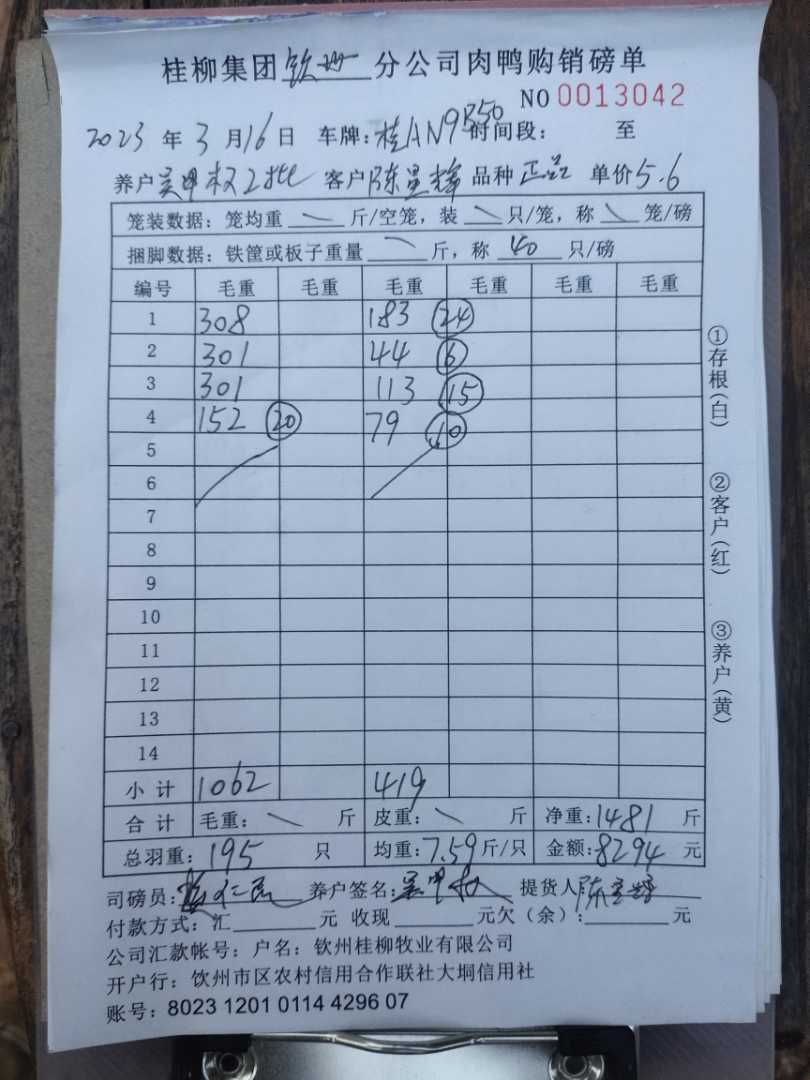 桂柳集团钦州分公司肉鸭购销磅单
NO 0013042
2023年3月16日 车牌:桂AN9B50时间段: 至
养户吴甲权2批 客户陈呈锋 品种正品 单价5.6
笼装数据:笼均重 斤/空笼,装 只/笼,称 笼/磅
捆脚数据:铁筐或板子重量 斤,称 40 只/磅
编号 毛重 毛重 毛重 毛重 毛重 毛重
1 308 183 24
2 301 44 6
3 301 113 15
4 152 20 79 10
5
6
7
8
9
10
11
12
13
14
小计 1062 419
合计 毛重: 斤 皮重: 斤 净重:1481 斤
总羽重:195 只 均重:7.59斤/只 金额:8294 元
司磅员: 养户签名:吴甲权 提货人陈
付款方式:汇 元 收现 元欠(余): 元
公司汇款帐号:户名:钦州桂柳牧业有限公司
开户行:饮州市区农村信用合作联社大垌信用社
账号:8023 1201 0114 4296 07
①存根(白)
②客户(红)
③养户(黄)